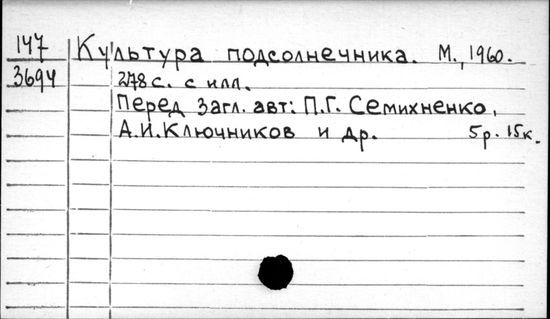 147 Культура подсолнечника. М., 1960.
3694 278 с. с илл.
Перед загл. авт: П.Г. Семихненко,
А.И.Ключников и др. 5р. 15к.